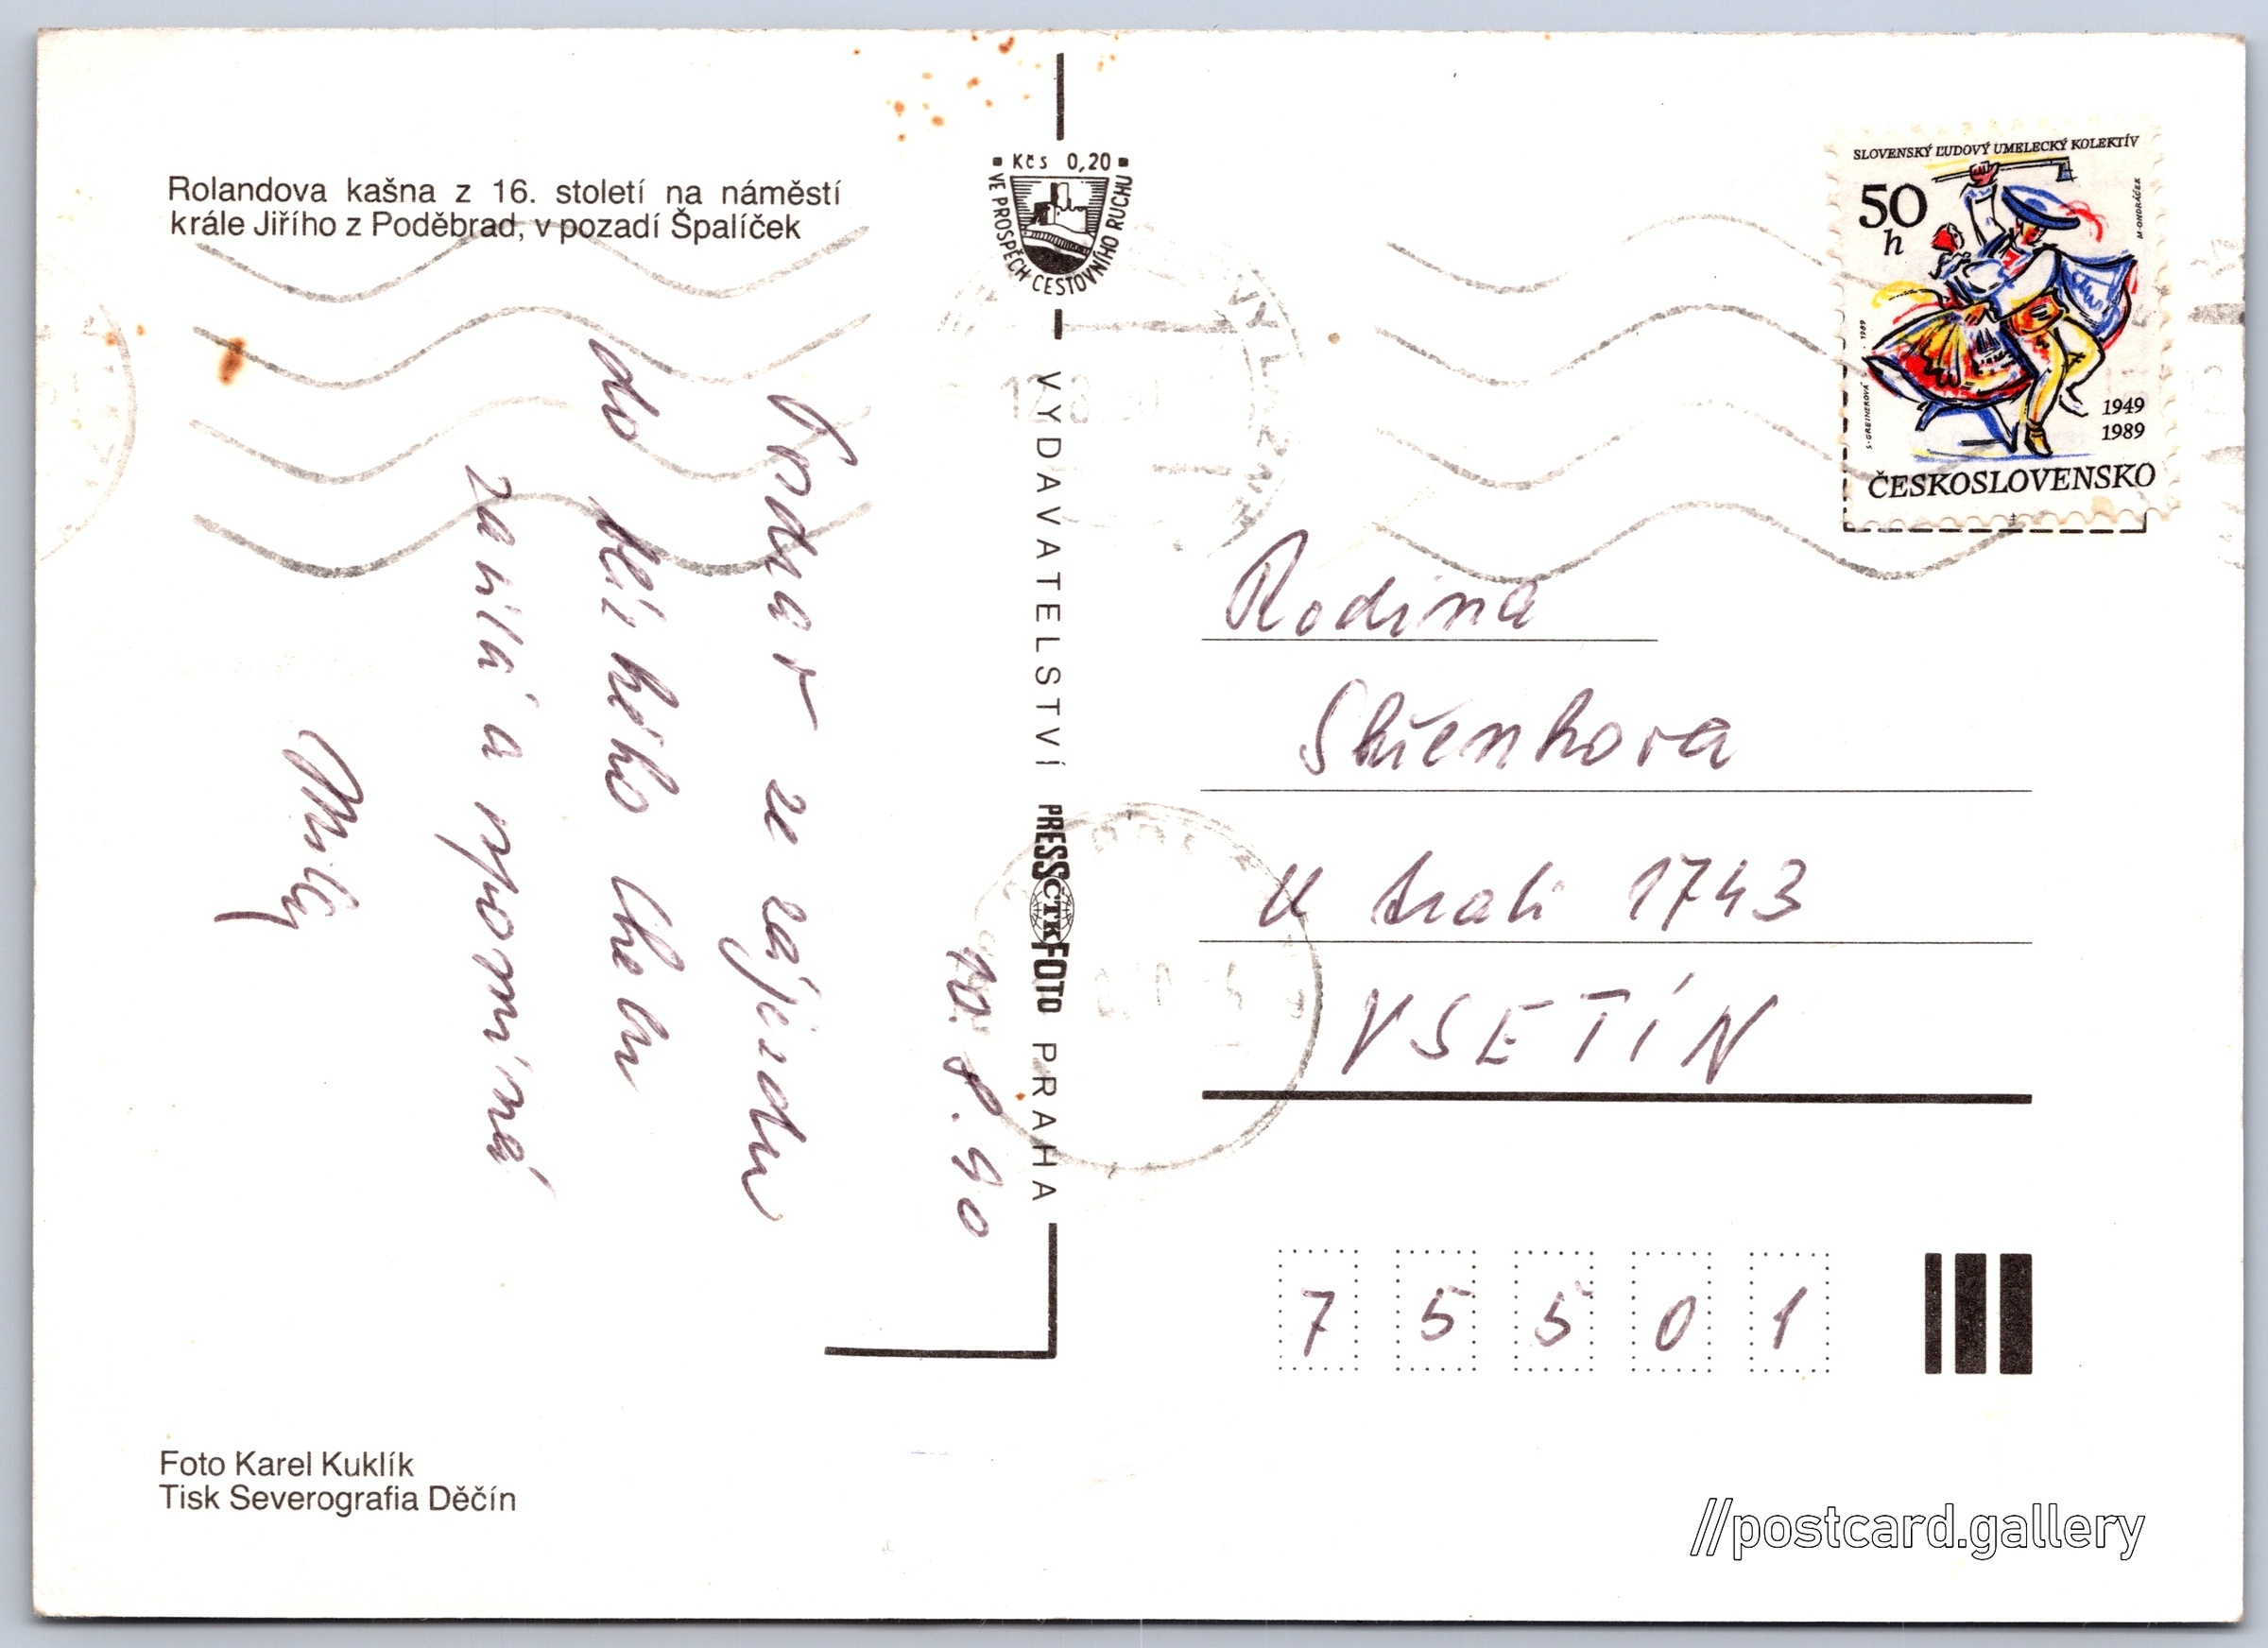 Rolandova kašna z 16. století na náměstí
krále Jiřího z Poděbrad, v pozadí Špalíček
10.8.90
Pozdrav ze zájezdu
do pěkného Chebu
zasílá a vzpomíná
Foto Karel Kuklík
Tisk Severografia Děčín
Kčs 0,20
VE PROSPĚCH CESTOVNÍHO RUCHU
VYDAVATELSTVÍ PRESSFOTO PRAHA
ČTK
SLOVENSKÝ ĽUDOVÝ UMELECKÝ KOLEKTÍV
50
h
M·ONDRÁČEK
1949
1989
ČESKOSLOVENSKO
Rodina
U trati 1743
VSETÍN
75501
//postcard.gallery